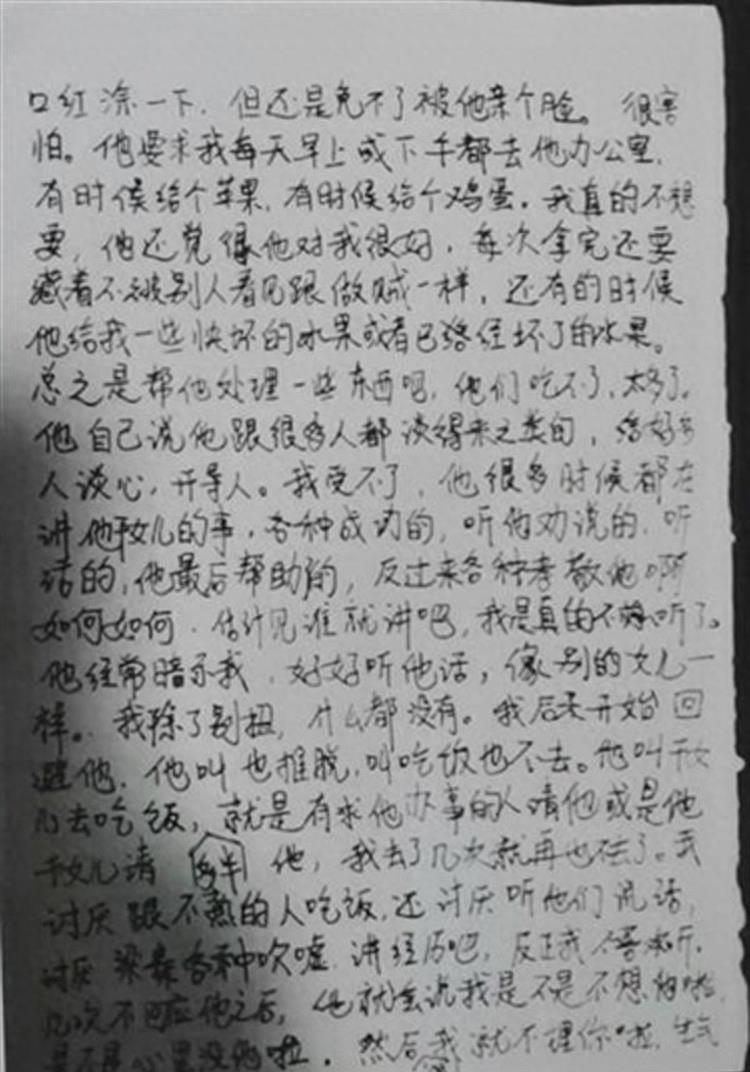 口红涂一下，但还是免不了被他亲个脸。很害
怕。他要求我每天早上或下午都去他办公室，
有时候给个苹果，有时候给个鸡蛋。我真的不想
要，他还觉得他对我很好，每次拿完还要
藏着不被别人看见跟做贼一样，还有的时候
他给我一些快坏的水果或者已经坏了的水果。
总之是帮他处理一些东西吧，他们吃不了，太多了。
他自己说他跟很多人都谈得来之类的，给好多
人谈心，开导人。我受不了，他很多时候都在
讲他干女儿的事，各种成功的，听他劝说的，听
话的，他最后帮助的，反过来各种孝敬他啊
如何如何，估计见谁就讲吧，我是真的不想听了。
他经常暗示我，好好听他话，像别的女儿一
样。我除了别扭，什么都没有。我后来开始回
避他，他叫也推脱，叫吃饭也不去。他叫干女
儿去吃饭，就是有求他办事的人请他或是他
干女儿请他，我去了几次就再也不去了。我
讨厌跟不熟的人吃饭，还讨厌听他们说话，
讨厌各种吹嘘，讲经历吧，反正我不喜欢听，
几次不回应他之后，他就会说我是不是不想他啦，
是不是心里没他啦。然后我就不理你啦，生气